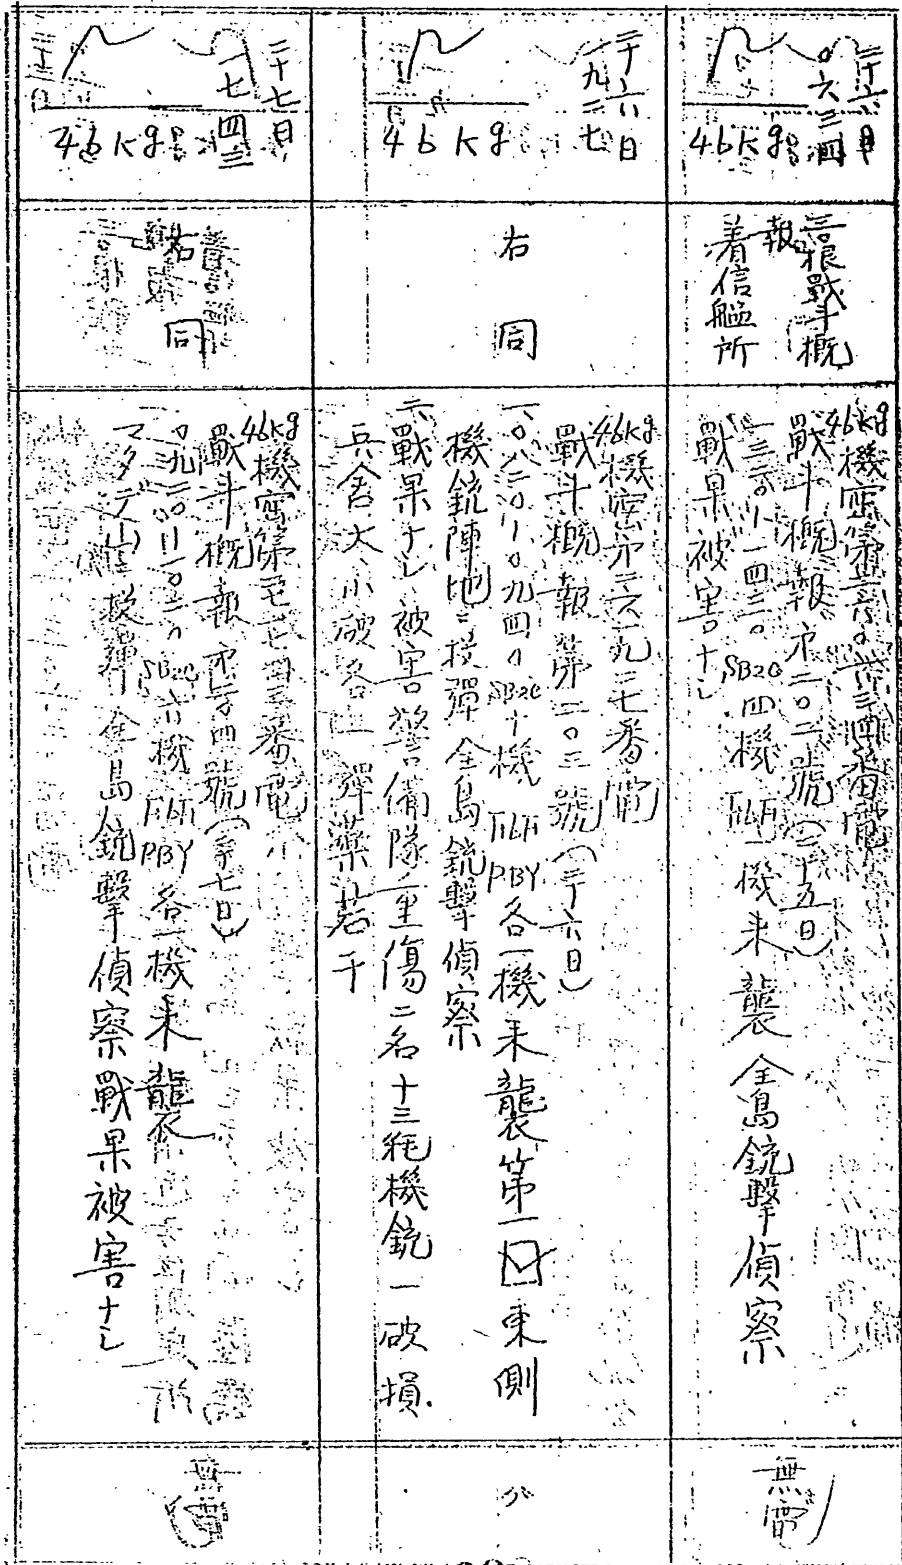 二十六日
〇六三四
46kg
三根戦斗概
報
着信艦所
46kg機密第二六〇六三四番電
戰斗概報第二〇二號(二十五日)
一三二〇〜一四三〇SB2C四機F4F一機来襲全島銃擊偵察
戰果被害ナシ
無電
二十六日
一九二七
46kg
右同
46kg機密第二六一九二七番電
戰斗概報第二〇三號(二十六日)
一、〇八二〇〜〇九四〇SB2C十機F4F PBY各一機来襲第一 東側
機銃陣地ニ投彈全島銃擊偵察
二、戰果ナシ被害警備隊重傷二名十三粍機銃一破損
兵舎大小破各一彈藥若干
〃
二十七日
一七四三
46kg
右同
46kg機密第二七一七四三番電
戰斗概報第二〇四號(二十七日)
〇九二〇〜一〇二〇SB2C六機F4F PBY各一機来襲
投彈全島銃擊偵察戰果被害ナシ
無電